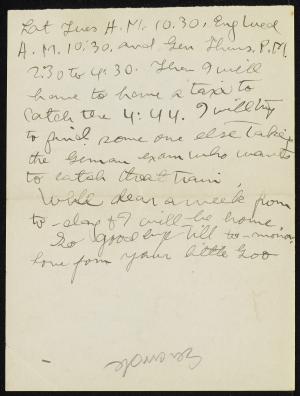 Lat Tues A.M. 10.30, Eng Wed
A.M. 10:30. and Ger Thurs. P.M.
2:30 to 4:30. Then I will
have to have a taxi to
catch the 4:44. I will try
to find some one else taking
the German exam who wants
to catch that train.
Well dear a week from
to-day I will be home.
So good bye till to-morrow
love from your little Goo